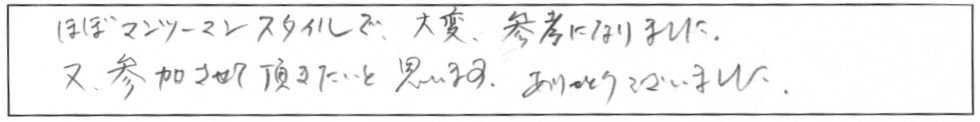 ほぼマンツーマンスタイルで、大変、参考になりました。
又、参加させて頂きたいと思います。ありがとうございました。